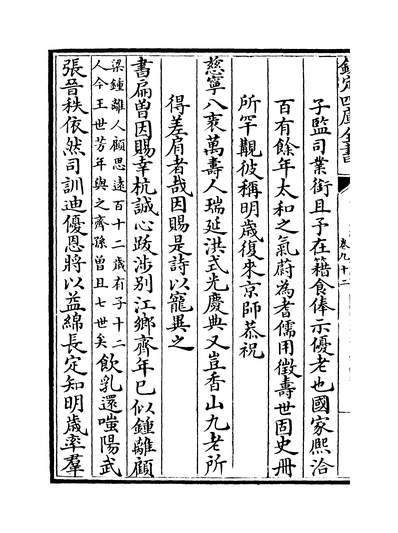 欽定四庫全書
卷九十二
子監司業銜且予在籍食俸示優老也國家熙洽
百有餘年太和之氣蔚為耆儒用徵壽世固史冊
所罕覯彼稱明歲復來京師恭祝
慈寧八袠萬壽人瑞延洪式光慶典又豈香山九老所
得差肩者哉因賜是詩以寵異之
書扁曾因賜幸杭誠心跋涉别江鄉齊年已似鍾離顧
梁鍾離人顧思遠百十二歲有子十二
人今王世芳年與之齊孫曾且七世矣
飲乳還嗤陽武
張晉秩依然司訓迪優恩將以益綿長定知明歲率羣